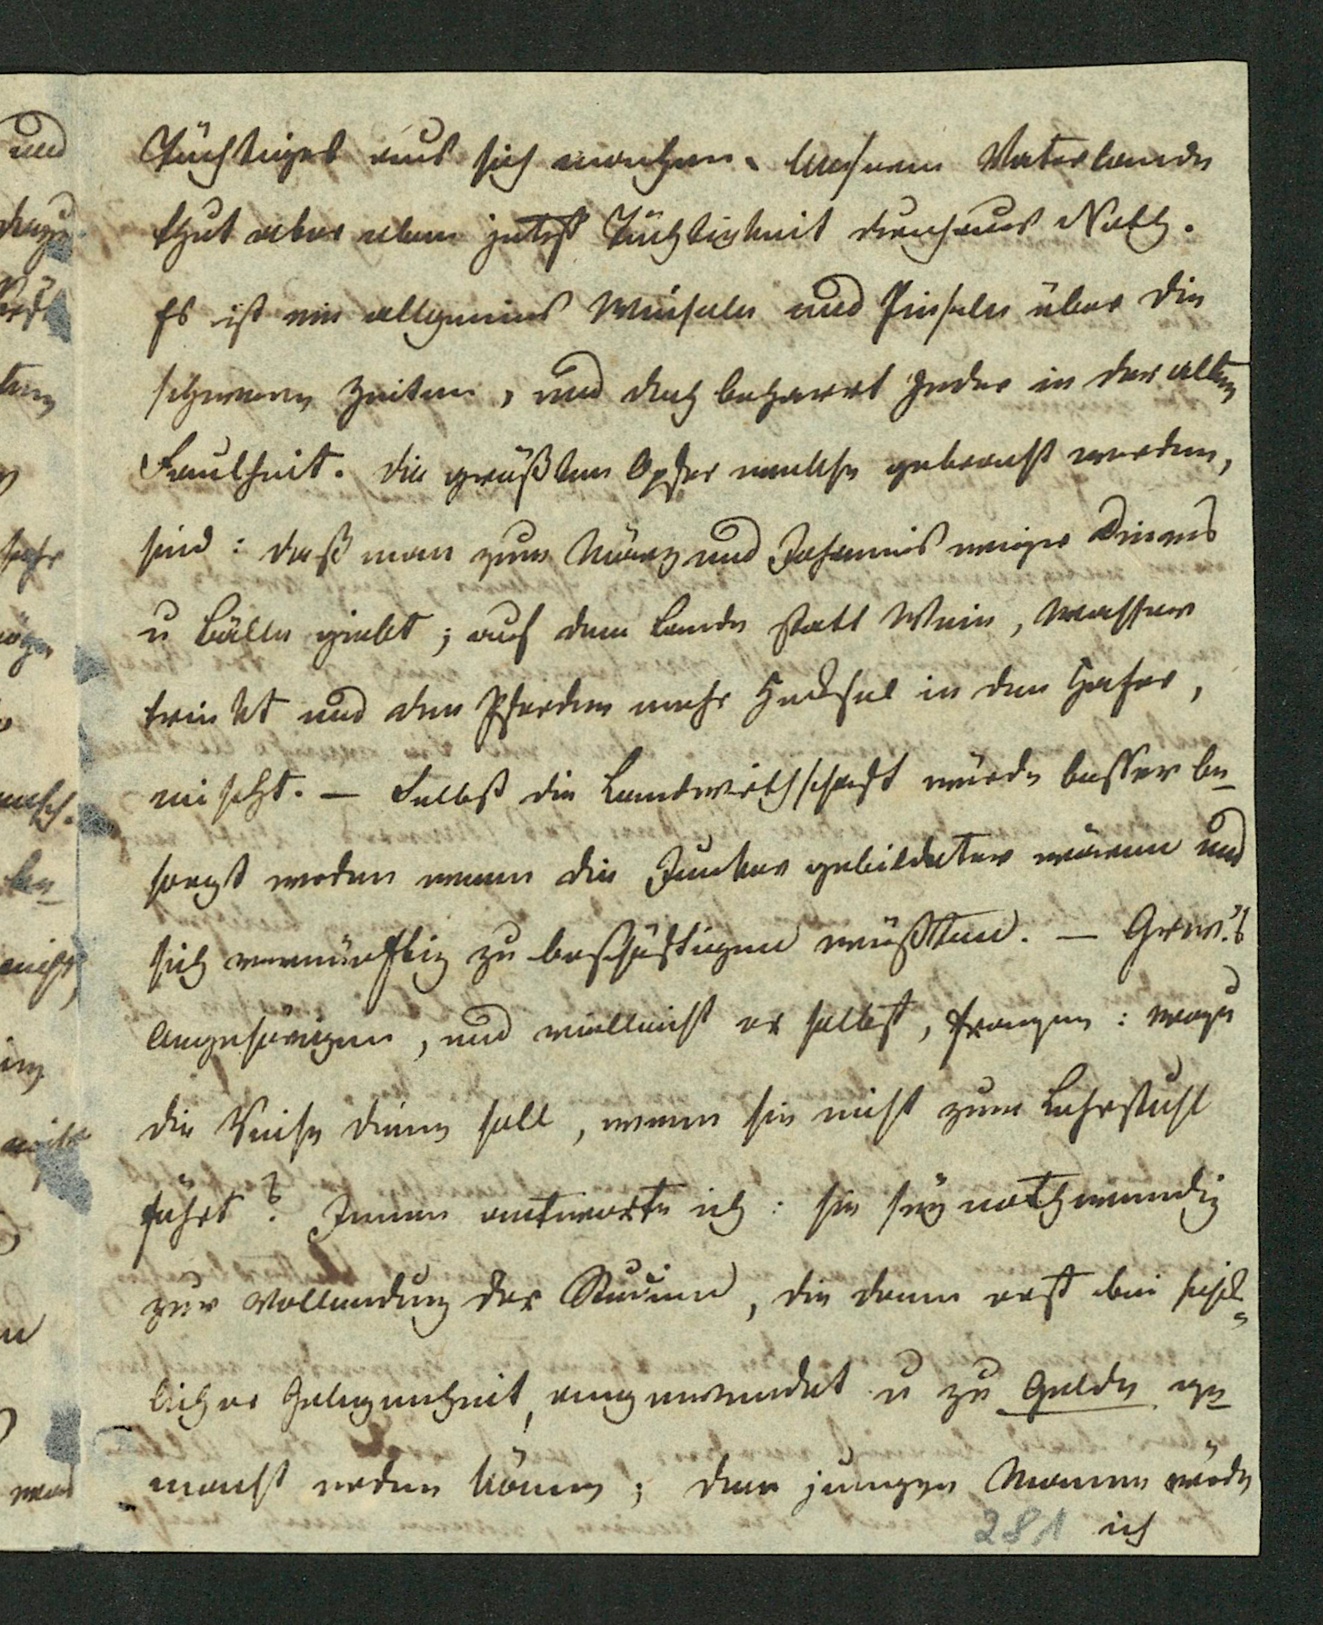 Tüchtiges aus sich machen. Unserm Vaterlande
thut aber eben jetzt Tüchtigkeit durchaus Noth.
Es ist ein allgemeines Winseln und Pinseln über die
schweren Zeiten, und doch beharrt Jeder in der alten
Faulheit. Die größten Opfer welche gebracht werden,
sind: daß man zum März und Johannis weniger Diners
u Bälle giebt; auf dem Lande statt Wein, Wasser
trinkt und den Pferden mehr Hecksel in den Hafer,
mischt. — Selbst die Landwirthschaft würde besser be-
sorgt werden wenn die Junker gebildeter wären und
sich vernünftig zu beschäftigen wüßten. —
Angehörigen, und vielleicht er selbst, fragen: wozu
die Reise dienen soll, wenn sie nicht zum Lehrstuhl
führt? Jenen antworte ich: sie sey nothwendig
zur Vollendung der Studien, die dann erst bei schick-
licher Gelegenheit, angewendet u zu Gelde ge-
macht werden können; dem jungen Manne würde
281 ich
und
nicht,